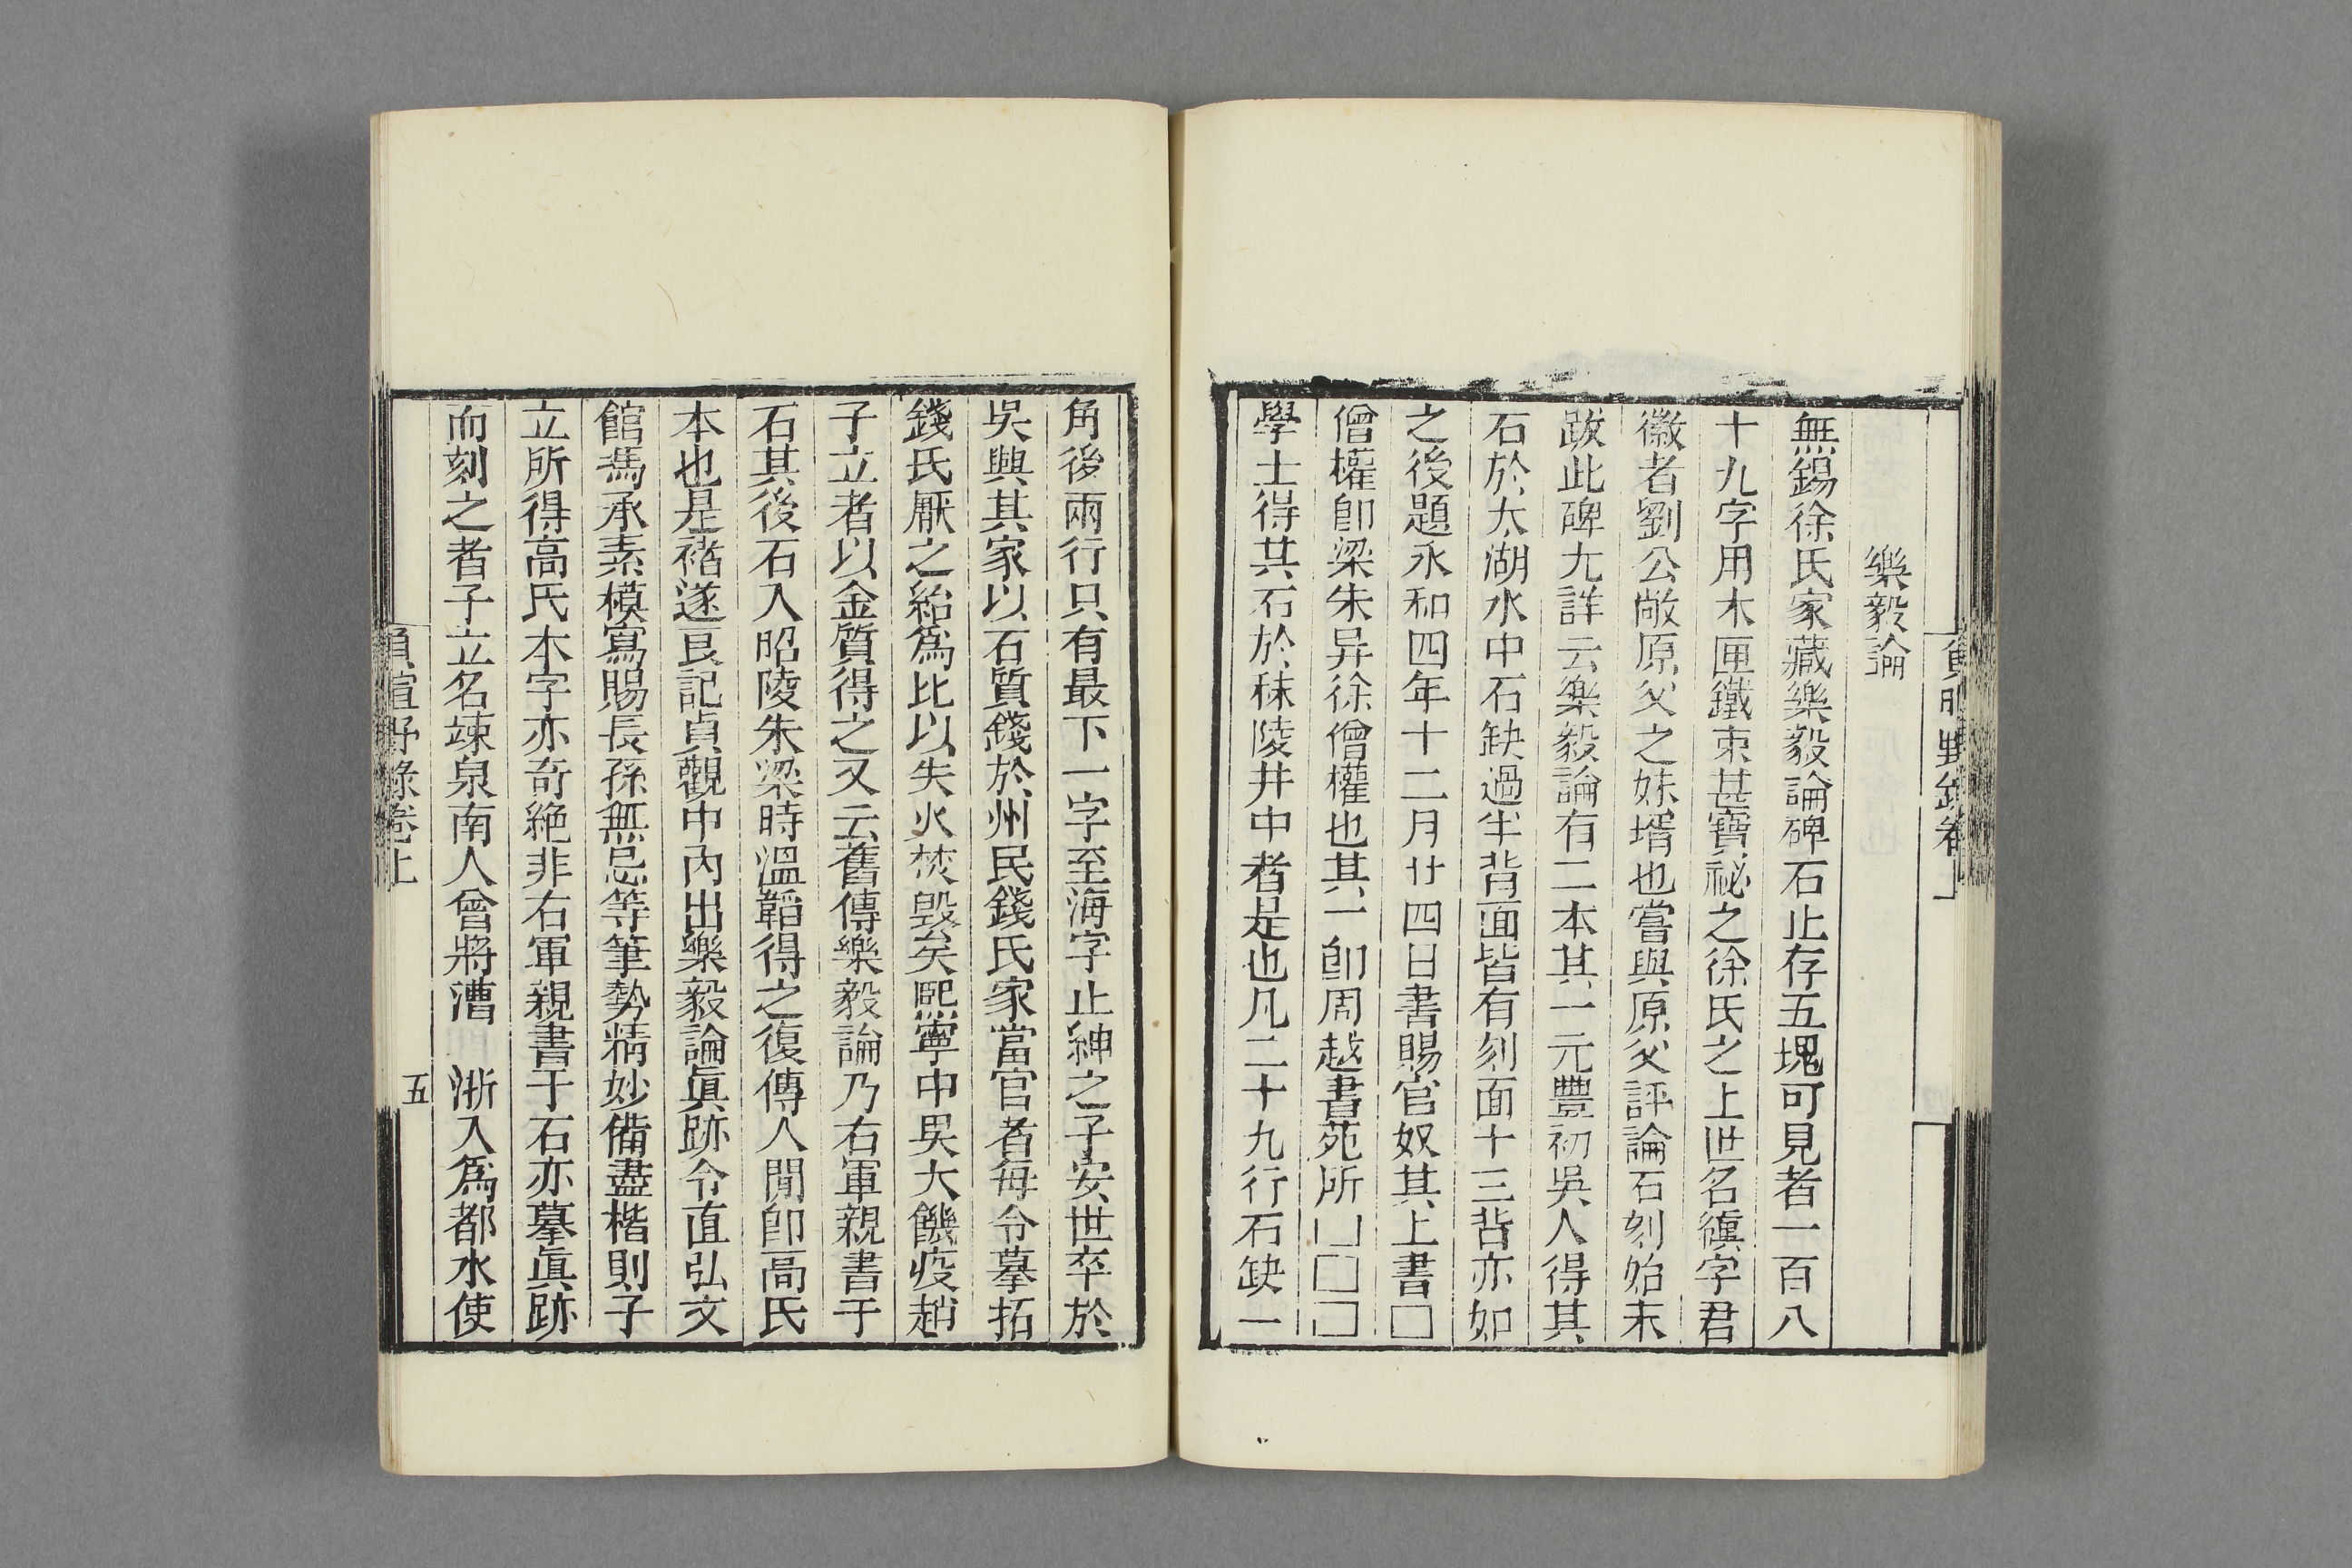 樂毅論
無錫徐氏家藏樂毅論碑石止存五塊可見者一百八
十九字用木匣鐵束甚寶祕之徐氏之上世名縝字君
徽者劉公敞原父之妹壻也嘗與原父評論石刻始末
跋此碑尤詳云樂毅論有二本其一元豐初吳人得其
石於太湖水中石缺過半背面皆有刻面十三背亦如
之後題永和四年十二月廿四日書賜官奴其上書□
僧權卽梁朱异徐僧權也其一卽周越書苑所□□□
學士得其石於秣陵井中者是也凡二十九行石缺一
角後兩行只有最下一字至海字止紳之子安世卒於
吳興其家以石質錢於州民錢氏家當官者每令摹拓
錢氏厭之紿爲比以失火焚毁矣熙寧中吳大饑疫趙
子立者以金質得之又云舊傳樂毅論乃右軍親書于
石其後石入昭陵朱梁時溫韜得之復傳人閒卽高氏
本也是褚遂良記貞觀中內出樂毅論眞跡令直弘文
館馮承素模寫賜長孫無忌等筆勢精妙備盡楷則子
立所得高氏本字亦奇絶非右軍親書于石亦摹眞跡
而刻之者子立名竦泉南人曾將漕 浙入爲都水使
負暄野錄卷上
五